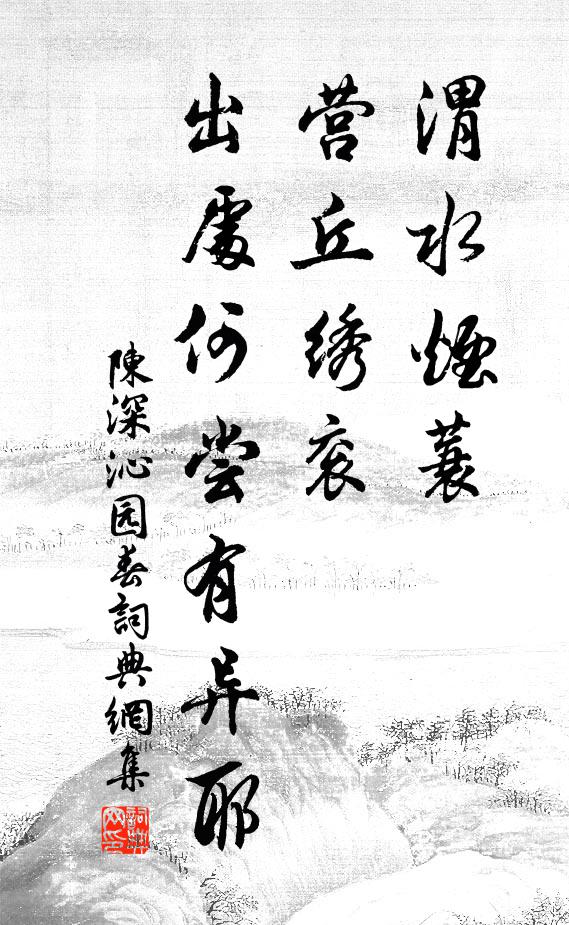 渭水煙蓑
营丘绣衮
出處何尝有异耶
陳深沁园春詞典網集